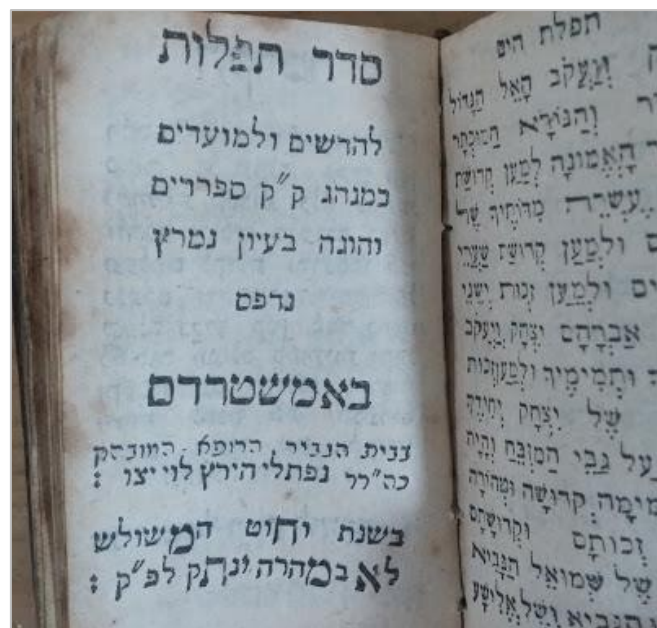 סדר תפלות
להדשים ולמועדים
כמנהג ק״ק ספרדים
והוגה בעיון נמרץ
נדפס
באמשטרדם
בבית הגביר הרופא המובהק
כה״רר נפתלי הירץ לוי יצו :
בשנת יחוט המשולש
לא במהרה ינתק לפ״ק :
תפלת היום
ויעקב האל הגדול
והנורא
האמונה למען קדושת
עשרה
ולמען קדושת שערי
ולמען זכות ישני
אברהם יצחק ויעקב
ותמימיך ולמען זכות
של יצחק יחידך
על גבי המזבח והיה
קדושה וטהורה
זכותם וקדושתם
של שמואל הנביא
הנביא ושל אלישע